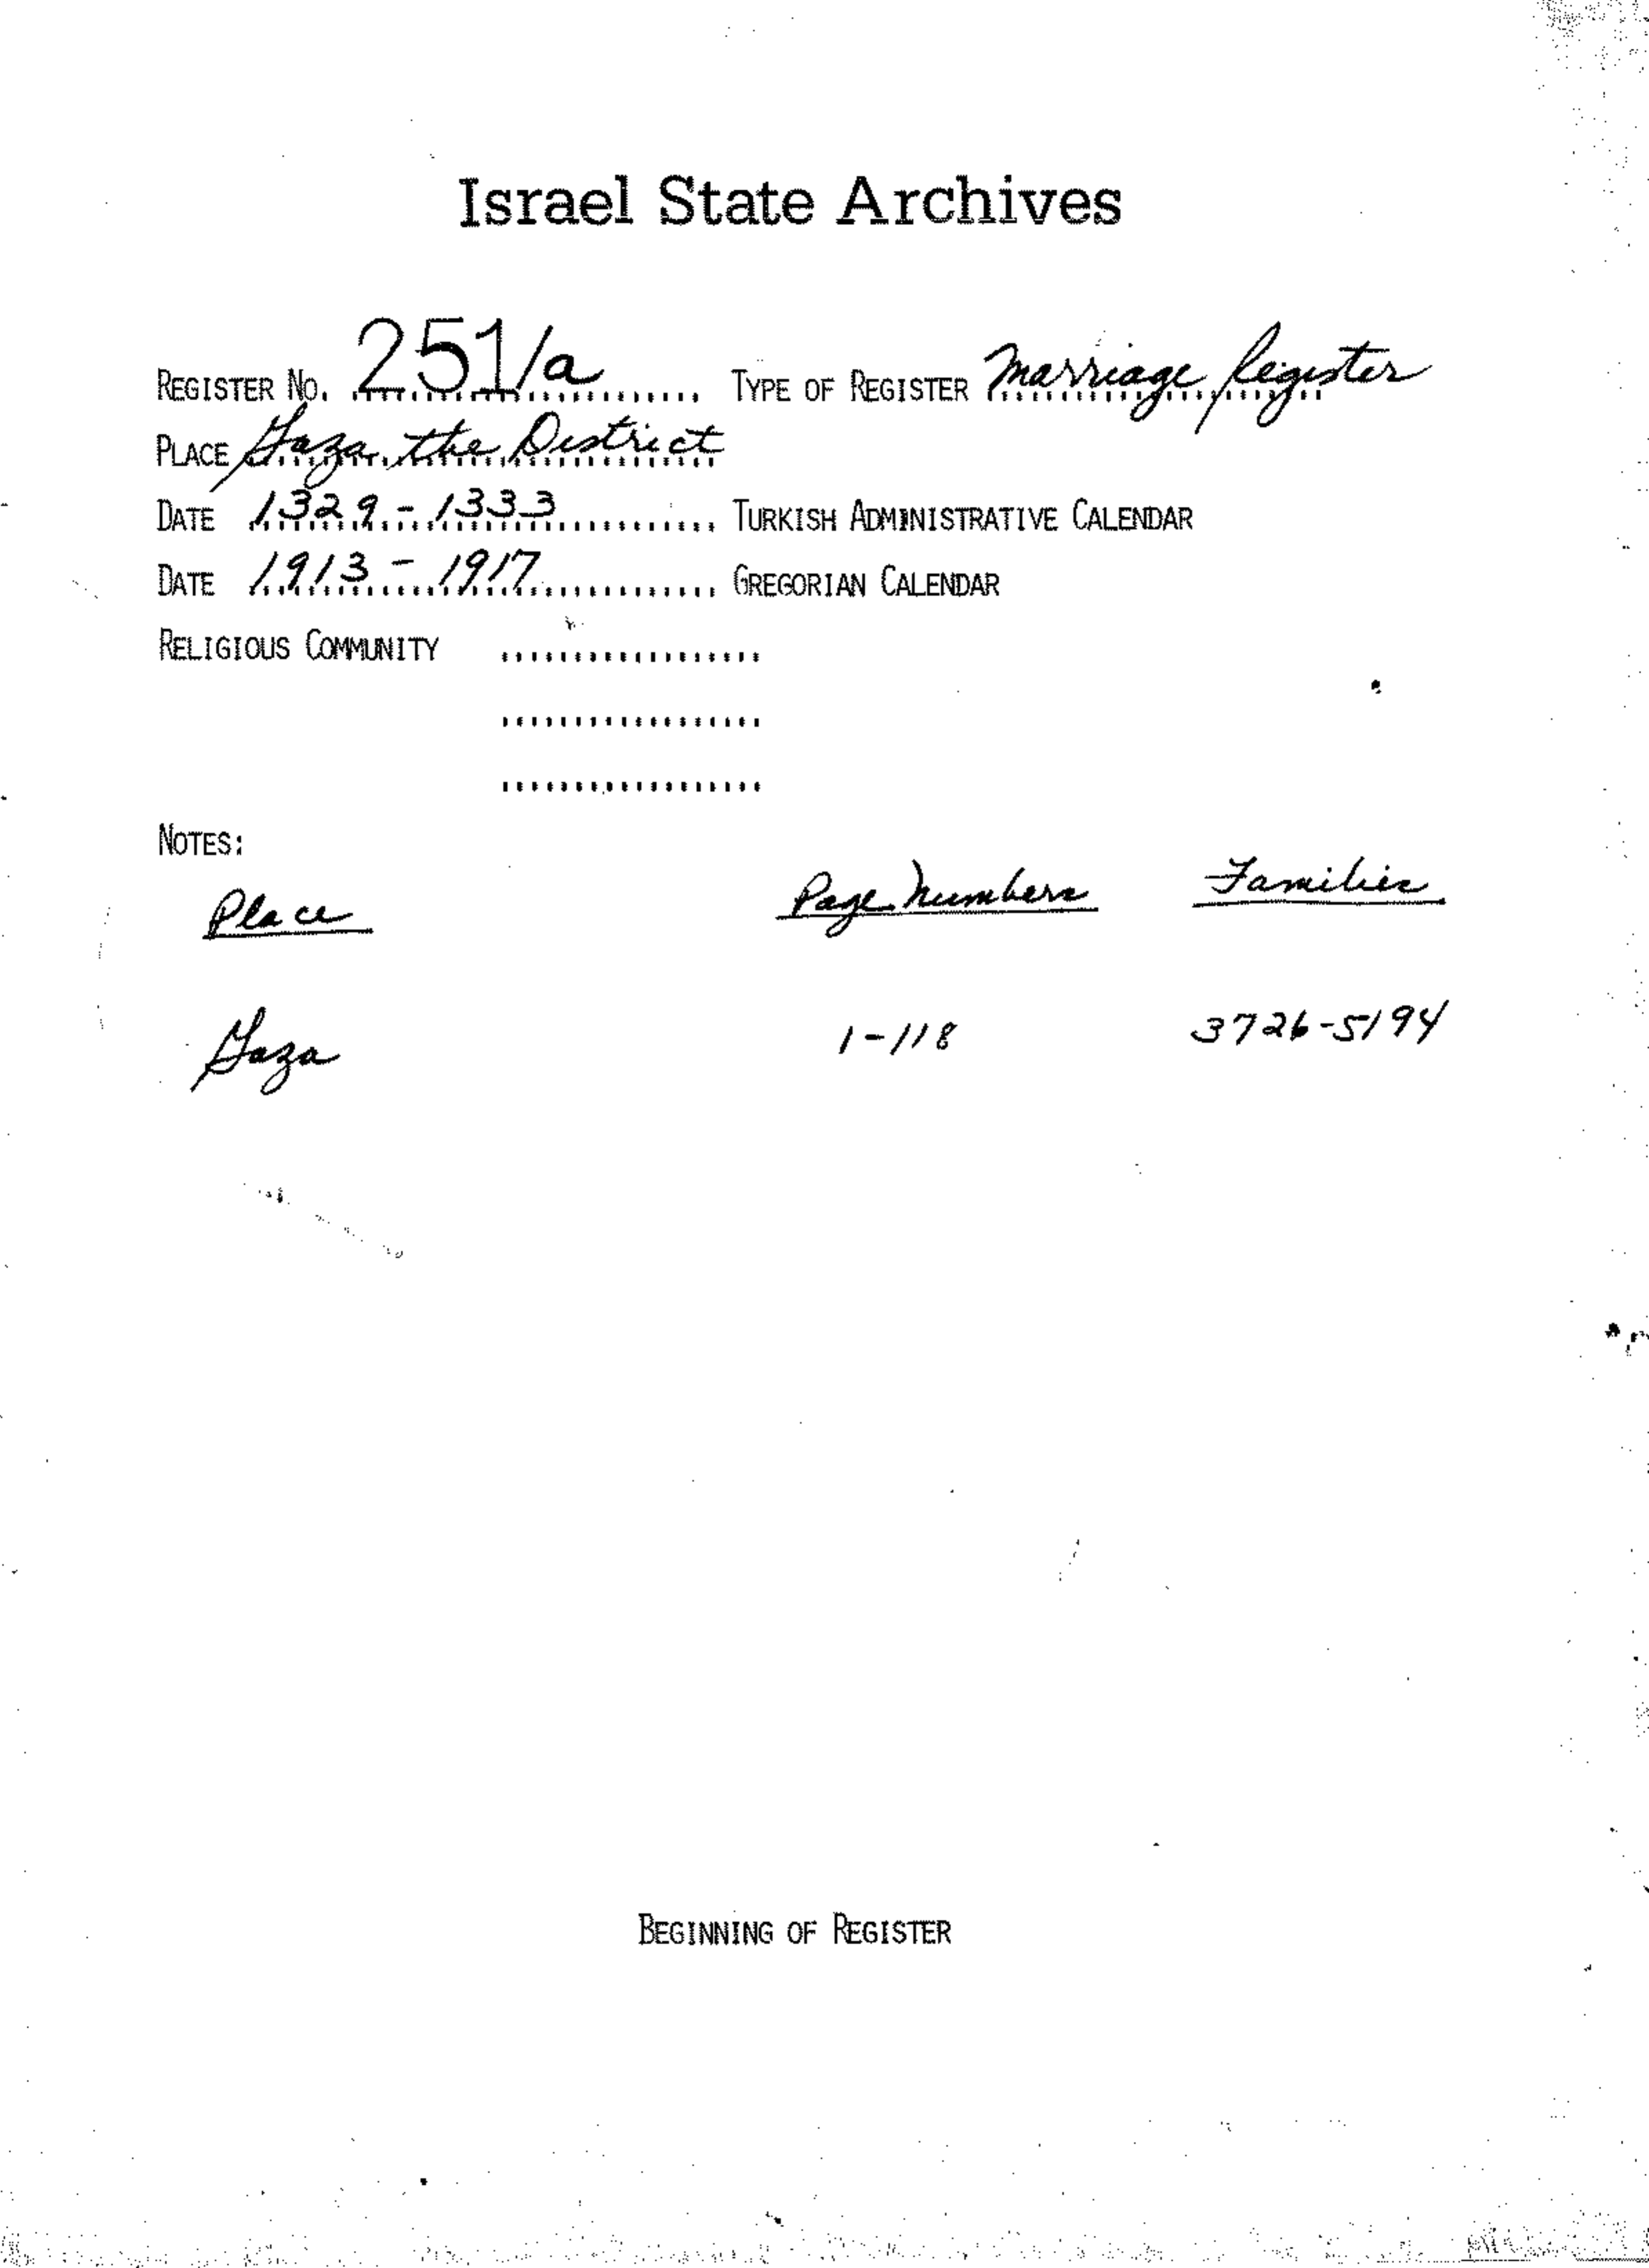 Israel State Archives
REGISTER NO. 251/a TYPE OF REGISTER Marriage Register
PLACE Gaza, the District
DATE 1329 - 1333 TURKISH ADMINISTRATIVE CALENDAR
DATE 1913 - 1917 GREGORIAN CALENDAR
RELIGIOUS COMMUNITY
NOTES:
Place Page Numbers Families
Gaza 1-118 3726-5194
BEGINNING OF REGISTER